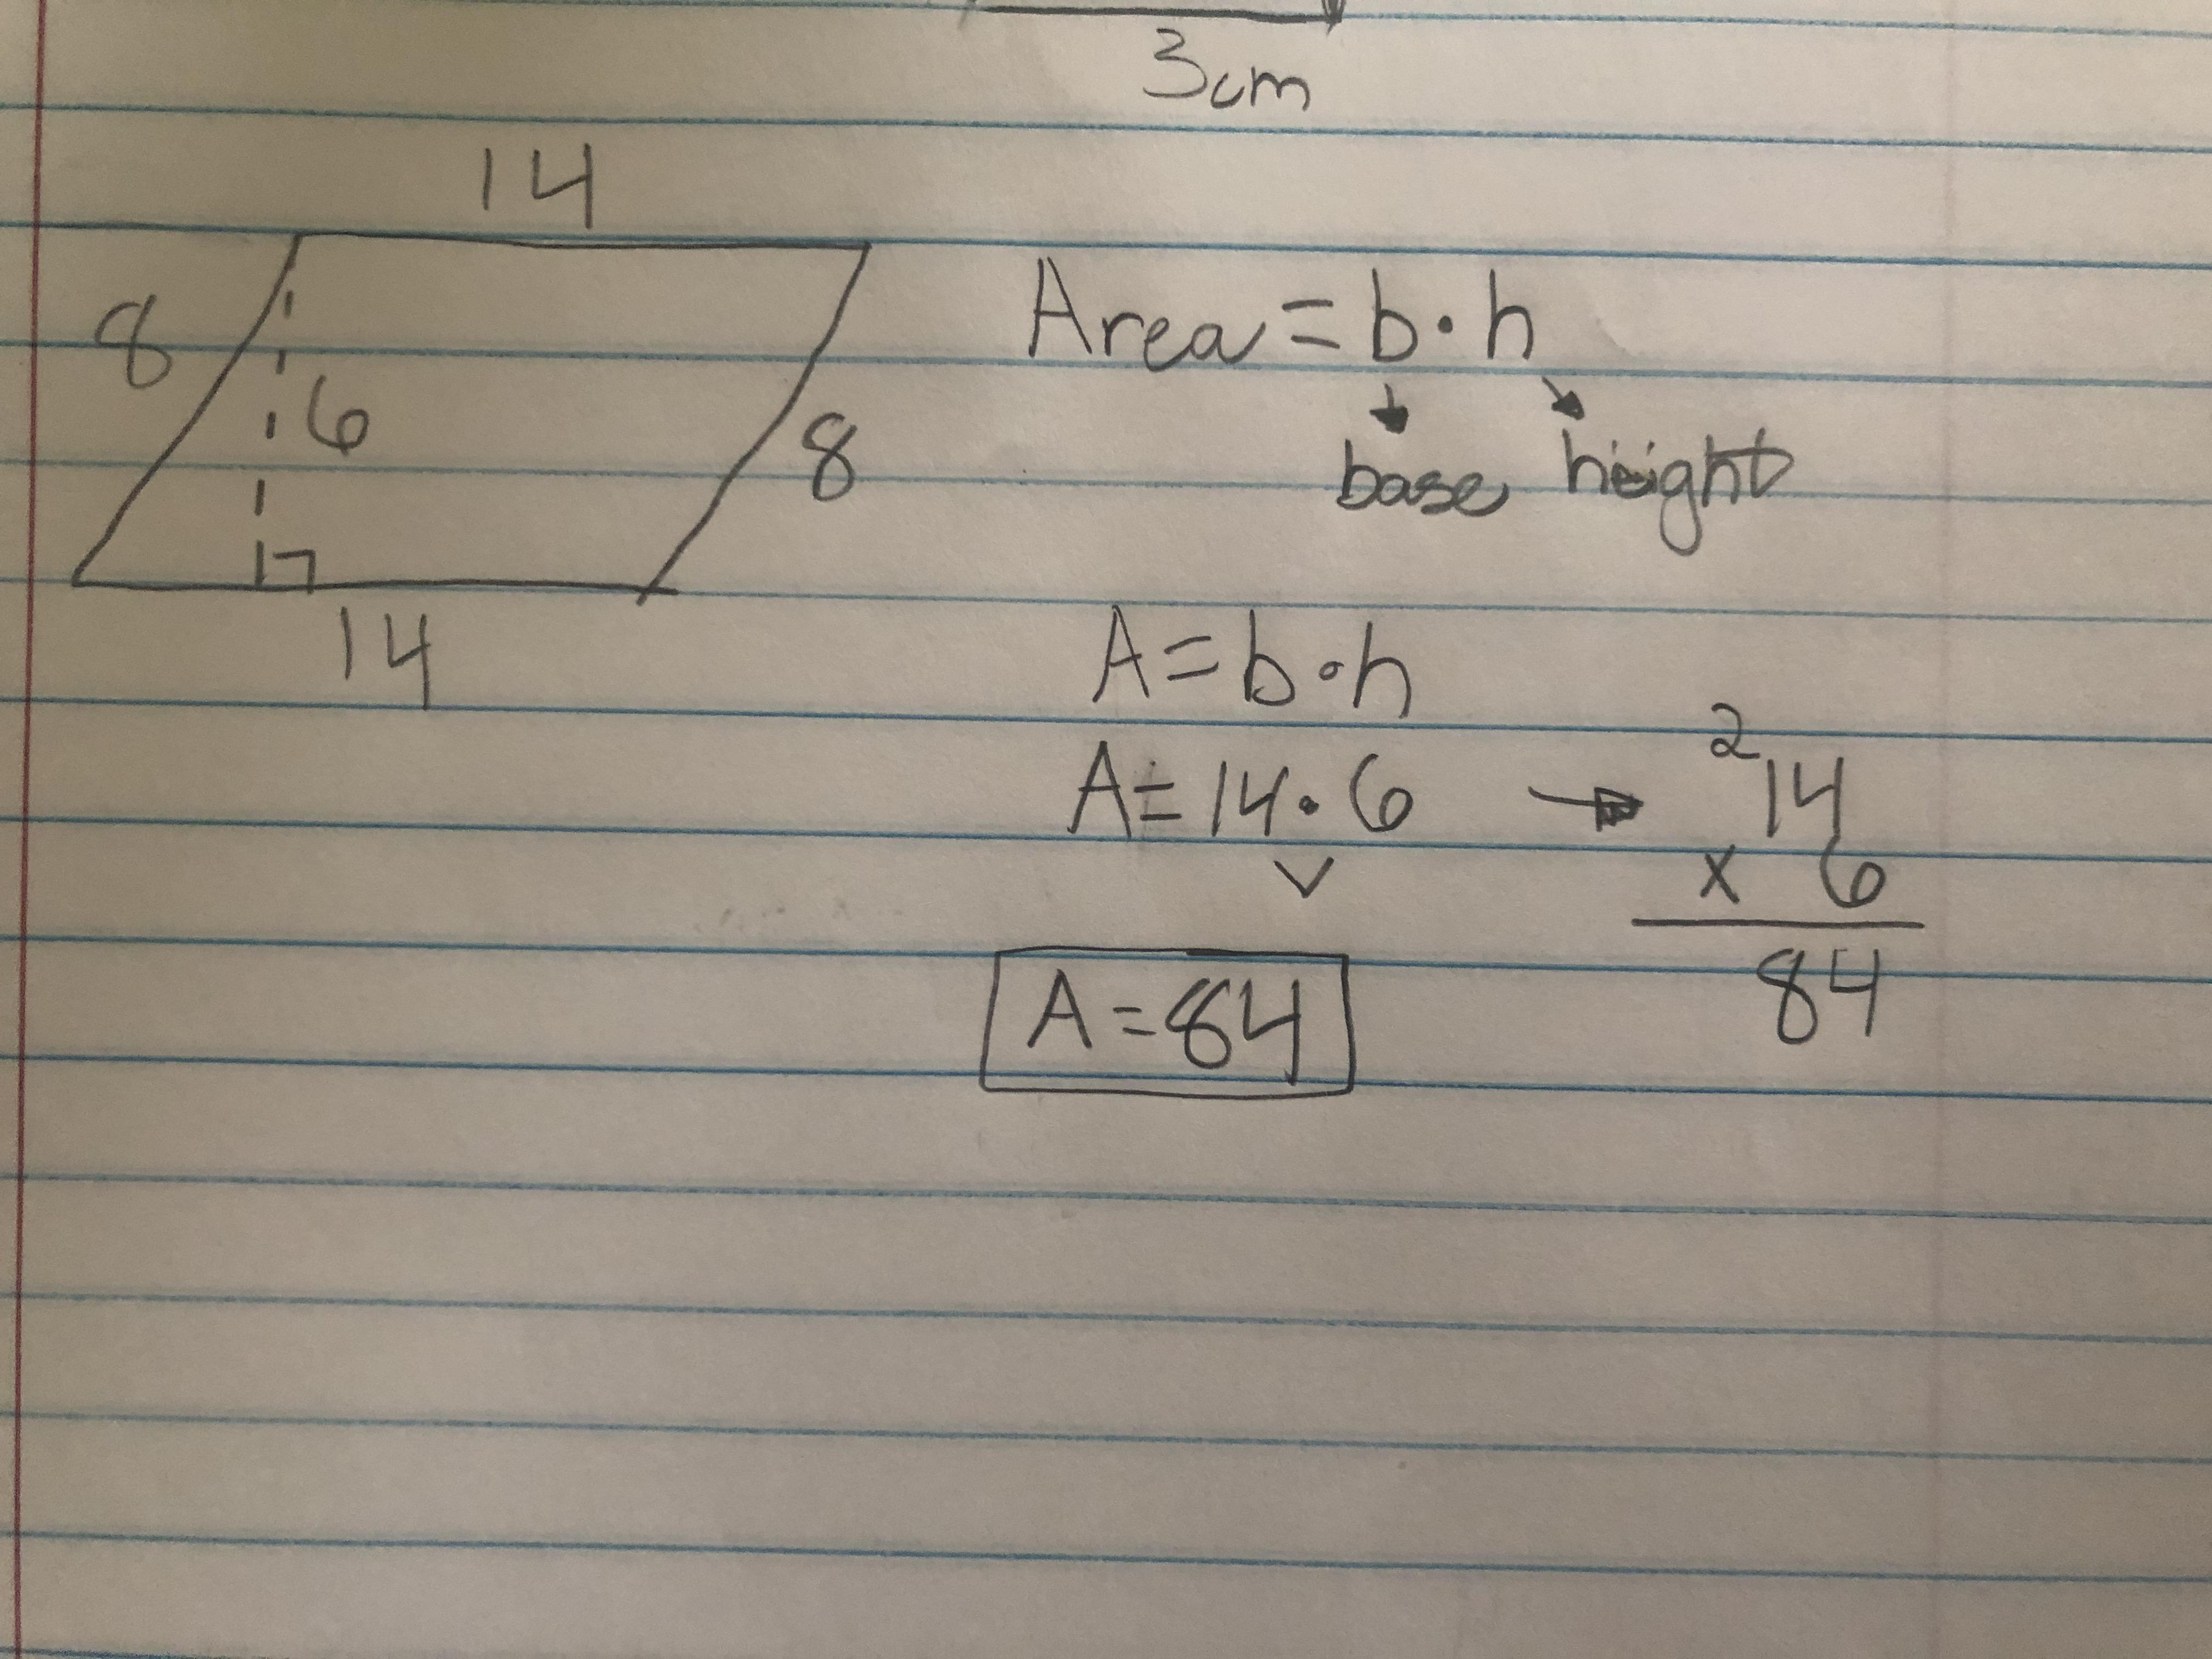 3cm
14
8
6
8
14
Area = b · h
base height
A = b · h
A = 14 · 6
2
14
x 6
84
A = 84